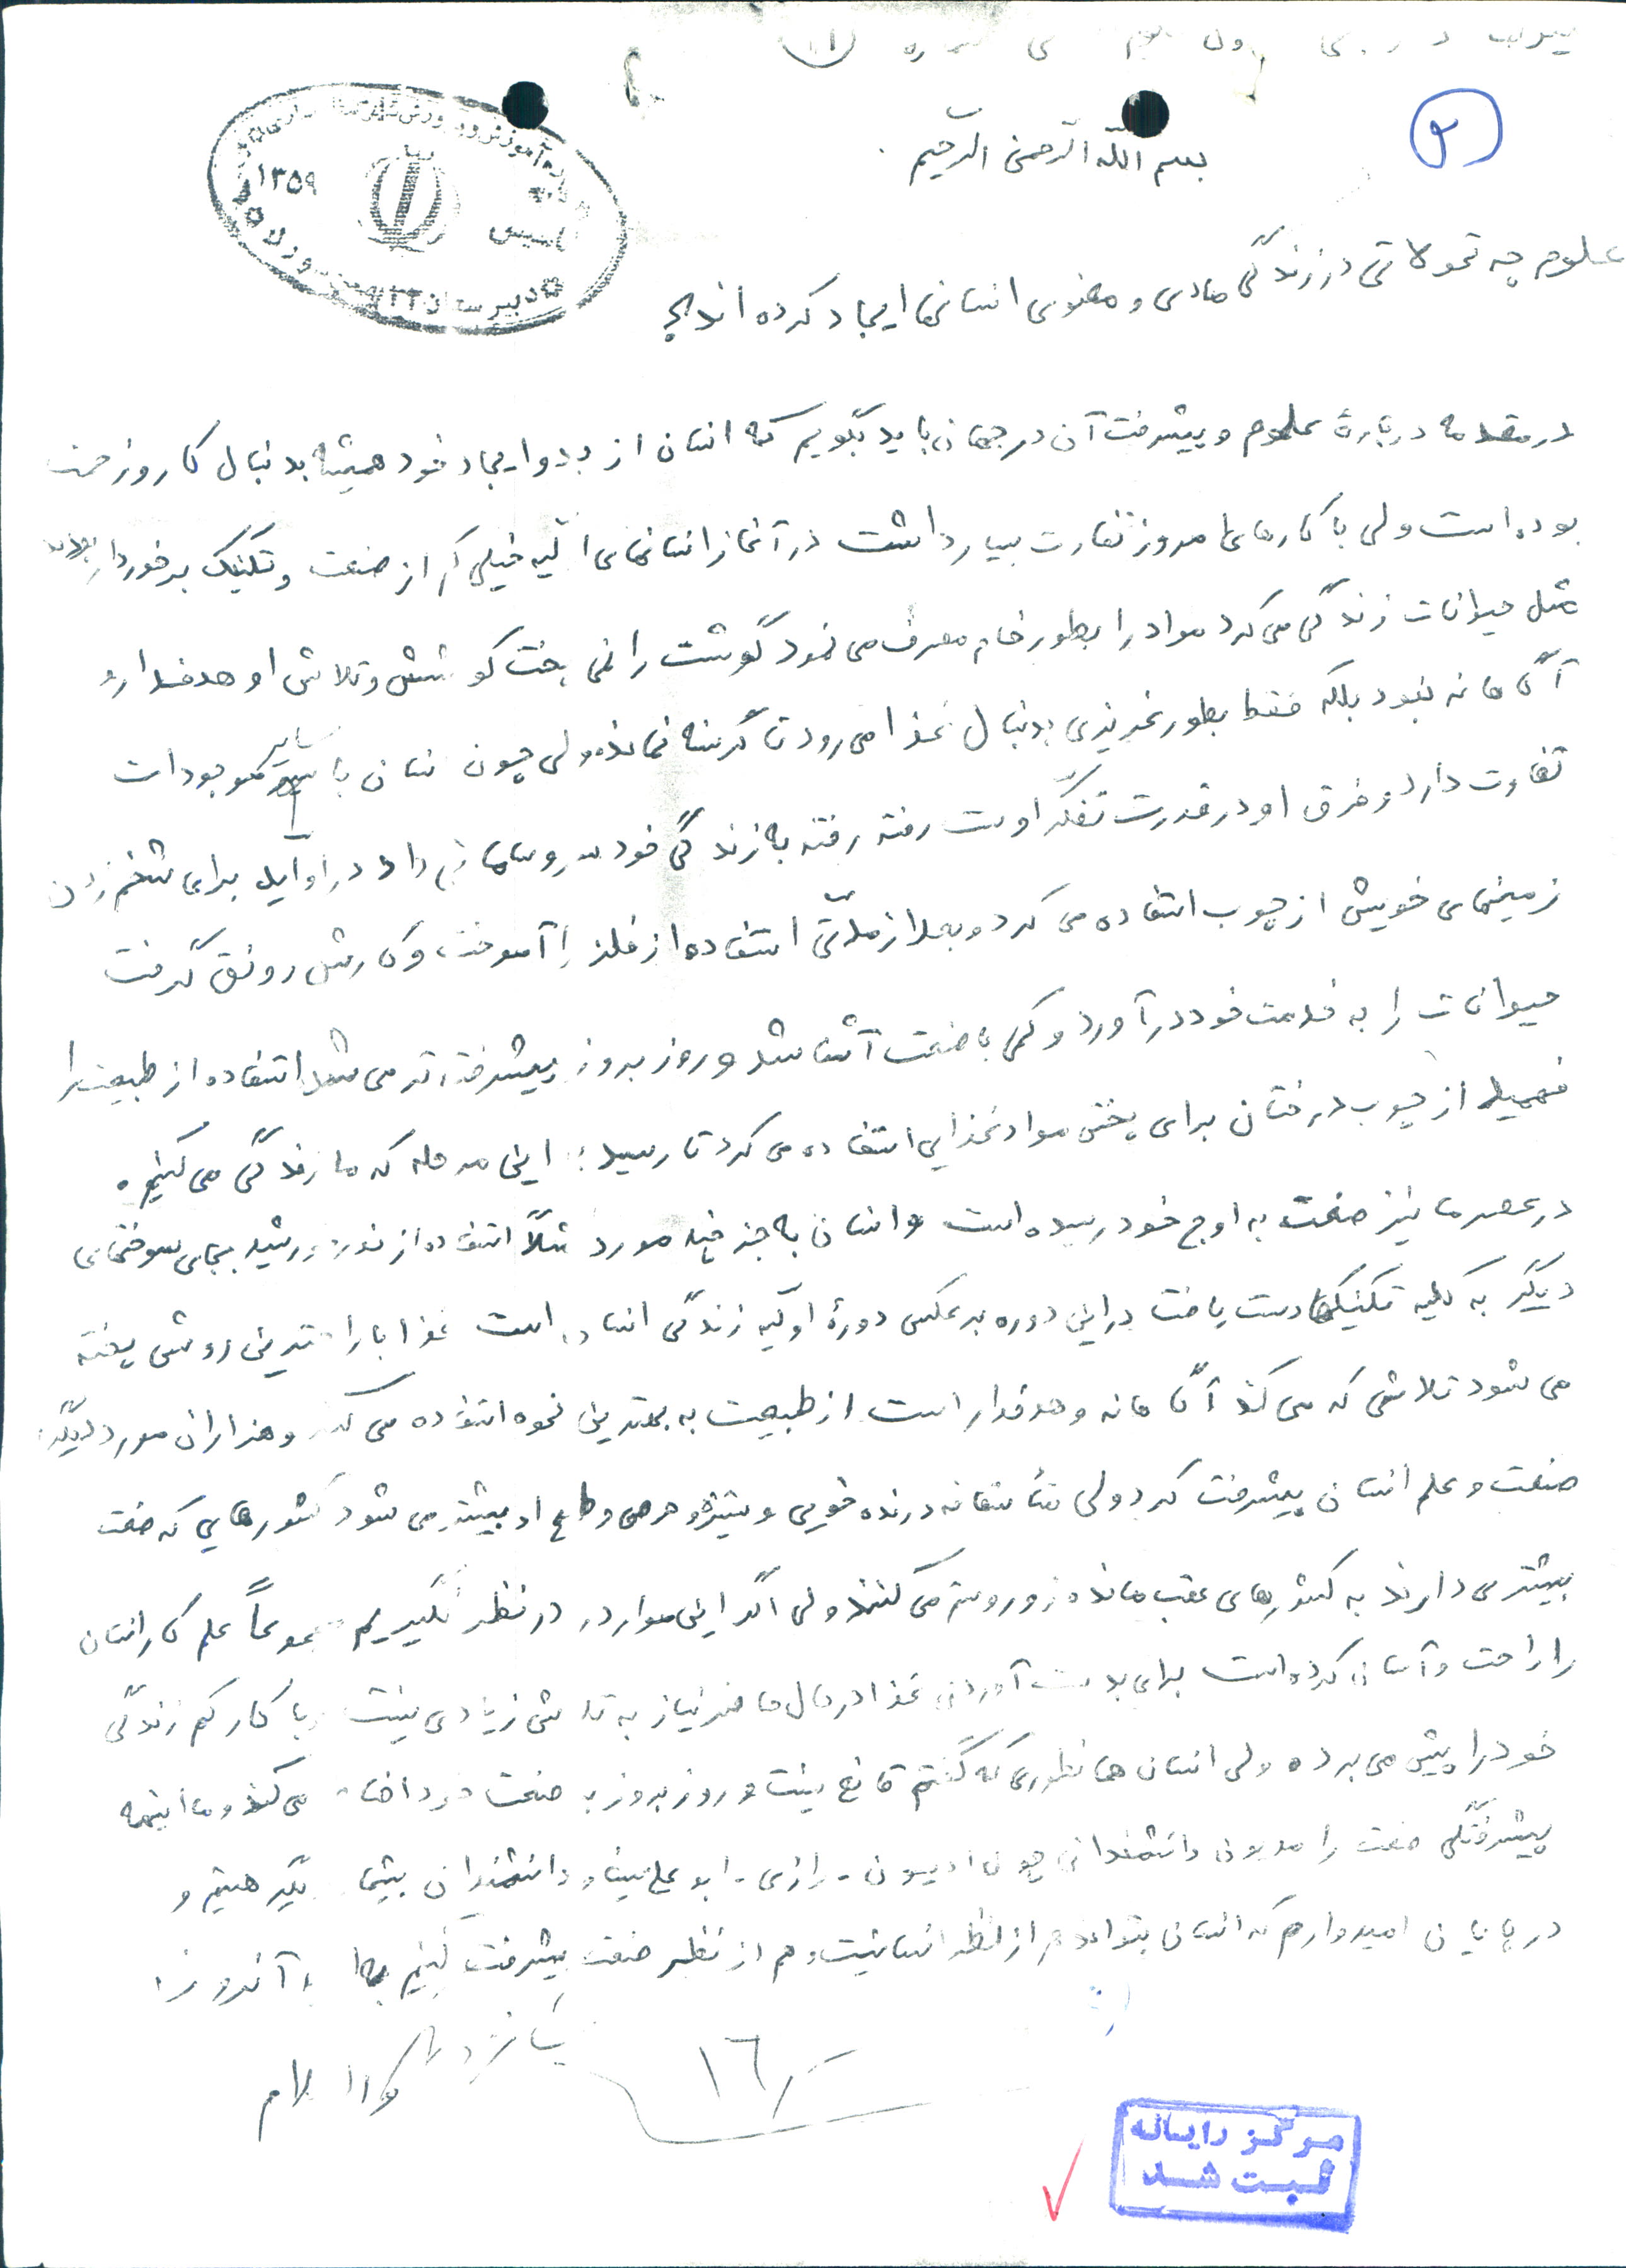 بسم اللّه الرّحمن الرّحیم
۱۳۵۹
تاسیس
دبیرستان ۲۲ بهمن
علوم چه تحولاتی در زندگی مادی و معنوی انسانها ایجاد کرده اند؟
در مقدمه دربارهٔ علوم و پیشرفت آن در جهان باید بگویم که انسان از بدو ایجاد خود همیشه بدنبال کار و زحمت
بوده است ولی با کارهای امروز تفاوت بسیار داشت در آغاز انسانهای اولیه خیلی کم از صنعت و تکنیک برخوردار بودند
مثل حیوانات زندگی می کرد مواد را بطور خام مصرف می نمود گوشت را نمی پخت کوشش و تلاش او هدفدار و
آگاهانه نبود بلکه فقط بطور غریزی بدنبال غذا می رود تا گرسنه نماند ولی چون انسان با سایر موجودات
تفاوت دارد و فرق او در قدرت تفکّر اوست رفته رفته به زندگی خود سر و سامانی داد در اوایل برای شخم زدن
زمینهای خویش از چوب استفاده می کرد و بعد از مدّتی استفاده از فلز را آموخت و کارش رونق گرفت
حیوانات را به خدمت خود در آورد و کمی با صنعت آشنا شد و روز بروز پیشرفته تر می شد استفاده از طبیعت را
فهمید از چوب درختان برای پختن مواد غذایی استفاده می کرد تا رسید به این مرحله که ما زندگی می کنیم.
در عصر ما نیز صنعت به اوج خود رسیده است و انسان به جز چند مورد مثلاً استفاده از نور خورشید بجای سوختهای
دیگر به کلیه تکنیکها دست یافت در این دوره برعکس دورهٔ اولیه زندگی انسان است غذا با راحتترین روش پخته
می شود تلاشی که می کند آگاهانه و هدفدار است از طبیعت به بهترین نحوه استفاده می کند و هزاران مورد دیگر.
صنعت و علم انسان پیشرفت کرد ولی متأسفانه درنده خویی و ستیز و حرص و طمع او بیشتر می شود کشورهایی که صنعت
بیشتری دارند به کشورهای عقب مانده زور و ستم می کنند ولی اگر این موارد را در نظر نگیریم مجموعاً علم کار انسان
را راحت و آسان کرده است برای بدست آوردن غذا در حال حاضر نیاز به تلاش زیادی نیست و با کار کم زندگی
خود را پیش می برد. ولی انسان همانطوری که گفتم قانع نیست و روز بروز به صنعت خود اضافه می کند و ما اینهمه
پیشرفتگی صنعت را مدیون دانشمندانی چون ادیسون - رازی - ابو علی سینا و دانشمندان بیشمار دیگر هستیم و
در پایان امیدوارم که انسان بتواند هم از نظر انسانیت و هم از نظر صنعت پیشرفت کنیم به آنروز.
۱۶
شانزده
مرکز رایانه
ثبت شد